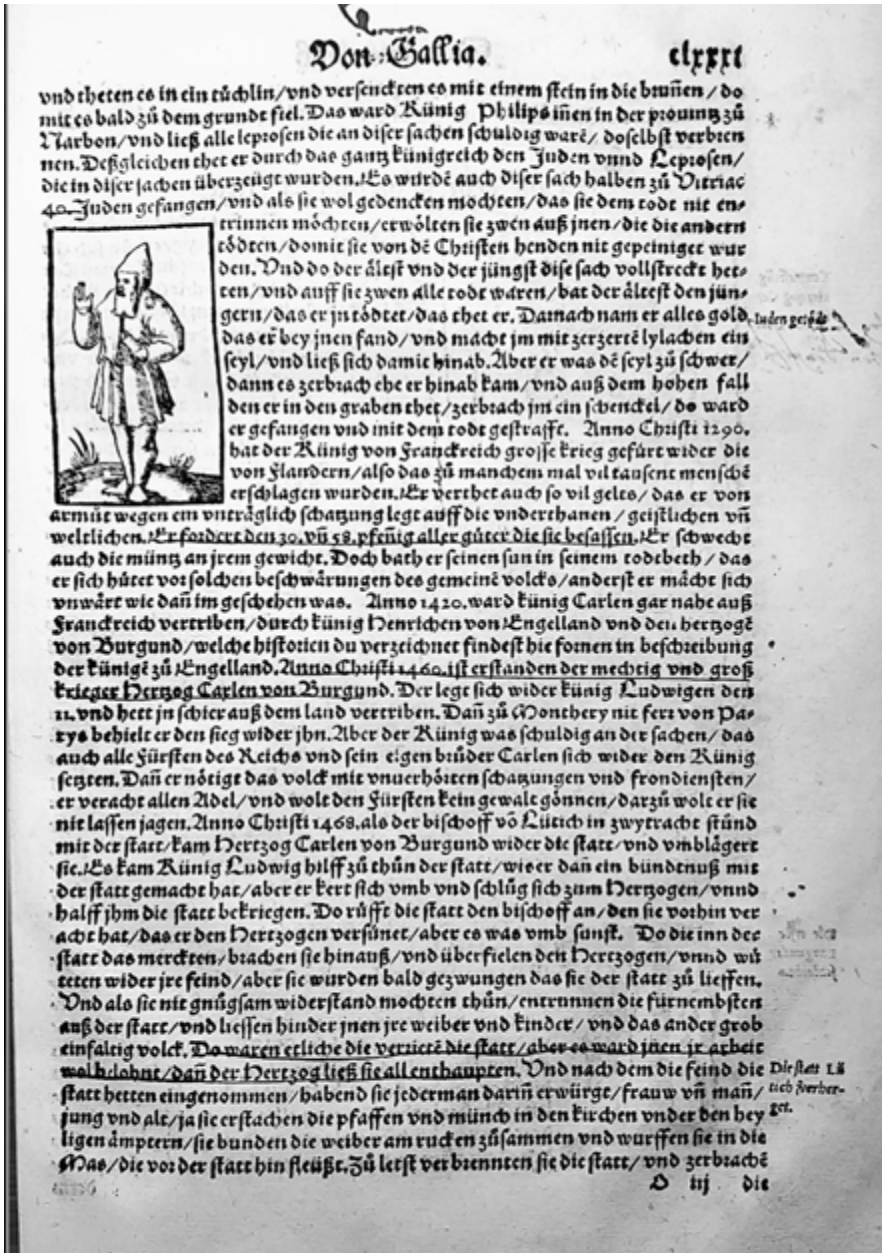 Von Gallia. clxxxi
vnd theten es in ein tüchlin/vnd versenckten es mit einem stein in die brunnē/do
mit es bald zů dem grundt fiel. Das ward Künig Philips iñen in der prouintz zů
Narbon/vnd ließ alle leprosen die an diser sachen schuldig warē/ doselbst verbren
nen. Deßgleichen thet er durch das gantz künigreich den Juden vnnd Leprosen/
die in diser sachen überzeugt wurden. Es wurdē auch diser sach halben zů Vitriac
40. Juden gefangen/vnd als sie wol gedencken mochten/das sie dem todt nit en-
trinnen möchten/erwölten sie zwen auß jnen/die die andern
tödten/domit sie von dē Christen henden nit gepeiniget wur
den. Vnd do der ältst vnd der jüngst dise sach vollstreckt het-
ten/vnd auff sie zwen alle todt waren/bat der ältest den jün-
gern/das er jn tödtet/das thet er. Darnach nam er alles gold
Juden getödt
das er bey jnen fand/vnd macht jm mit zerzertē lylachen ein
seyl/vnd ließ sich damit hinab. Aber er was dē seyl zů schwer/
dann es zerbrach ehe er hinab kam/vnd auß dem hohen fall
den er in den graben thet/zerbrach jm ein schenckel/do ward
er gefangen vnd mit dem todt gestrafft. Anno Christi 1290.
hat der Künig von Franckreich grosse krieg gefürt wider die
von Flandern/also das zů manchem mal vil tausent menschē
erschlagen wurden. Er verthet auch so vil gelts/das er von
armůt wegen ein vnträglich schatzung legt auff die vnderthanen/geistlichen vñ
weltlichen. Er fordert den 30. vñ 58. pfeñig aller güter die sie besassen. Er schwecht
auch die müntz an jrem gewicht. Doch bath er seinen sun in seinem todtbeth/das
er sich hütet vor solchen beschwärungen des gemeinē volcks/anderst er mächt sich
vnwärt wie dañ im geschehen was. Anno 1420. ward künig Carlen gar nahe auß
Franckreich vertriben/durch künig Henrichen von Engelland vnd den hertzogē
von Burgund/welche historien du verzeichnet findest hie fornen in beschreibung
der künigē zů Engelland. Anno Christi 1460. ist erstanden der mechtig vnd groß
krieger Hertzog Carlen von Burgund. Der legt sich wider künig Ludwigen den
11. vnd hett jn schier auß dem land vertriben. Dañ zů Monthery nit ferr von Pa-
rys behielt er den sieg wider jhn. Aber der Künig was schuldig an der sachen/das
auch alle Fürsten des Reichs vnd sein eigen brůder Carlen sich wider den Künig
setzten. Dañ er nötigt das volck mit vnuerhörten schatzungen vnd frondiensten/
er veracht allen Adel/vnd wolt den Fürsten kein gewalt gönnen/darzů wolt er sie
nit lassen jagen. Anno Christi 1468. als der bischoff vō Lütich in zwytracht stünd
mit der statt/kam Hertzog Carlen von Burgund wider die statt/vnd vmblägert
sie. Es kam Künig Ludwig hilff zů thůn der statt/wie er dañ ein bündtnuß mit
der statt gemacht hat/aber er kert sich vmb vnd schlůg sich zum Hertzogen/vnnd
halff jhm die statt bekriegen. Do růfft die statt den bischoff an/den sie vorhin ver
acht hat/das er den Hertzogen versünet/aber es was vmb sunst. Do die inn der
statt das merckten/brachen sie hinauß/vnd überfielen den Hertzogen/vnnd wü
teten wider jre feind/aber sie wurden bald gezwungen das sie der statt zů lieffen.
Vnd als sie nit gnůgsam widerstand mochten thůn/entrunnen die fürnembsten
auß der statt/vnd liessen hinder jnen jre weiber vnd kinder/vnd das ander grob
einfaltig volck. Do waren etliche die verrietē die statt/aber es ward jnen jr arbeit
wol belohnt/dañ der Hertzog ließ sie all enthaupten. Vnd nach dem die feind die
statt hetten eingenommen/habend sie jederman dariñ erwürgt/frauw vñ mañ/
jung vnd alt/ja sie erstachen die pfaffen vnd münch in den kirchen vnder den hey
Die statt Lü
tich zerher-
get.
ligen ämptern/sie bunden die weiber am rucken zůsammen vnd wurffen sie in die
Mas/die vor der statt hin fleüßt. Zů letst verbrennten sie die statt/vnd zerbrachē
O iij die